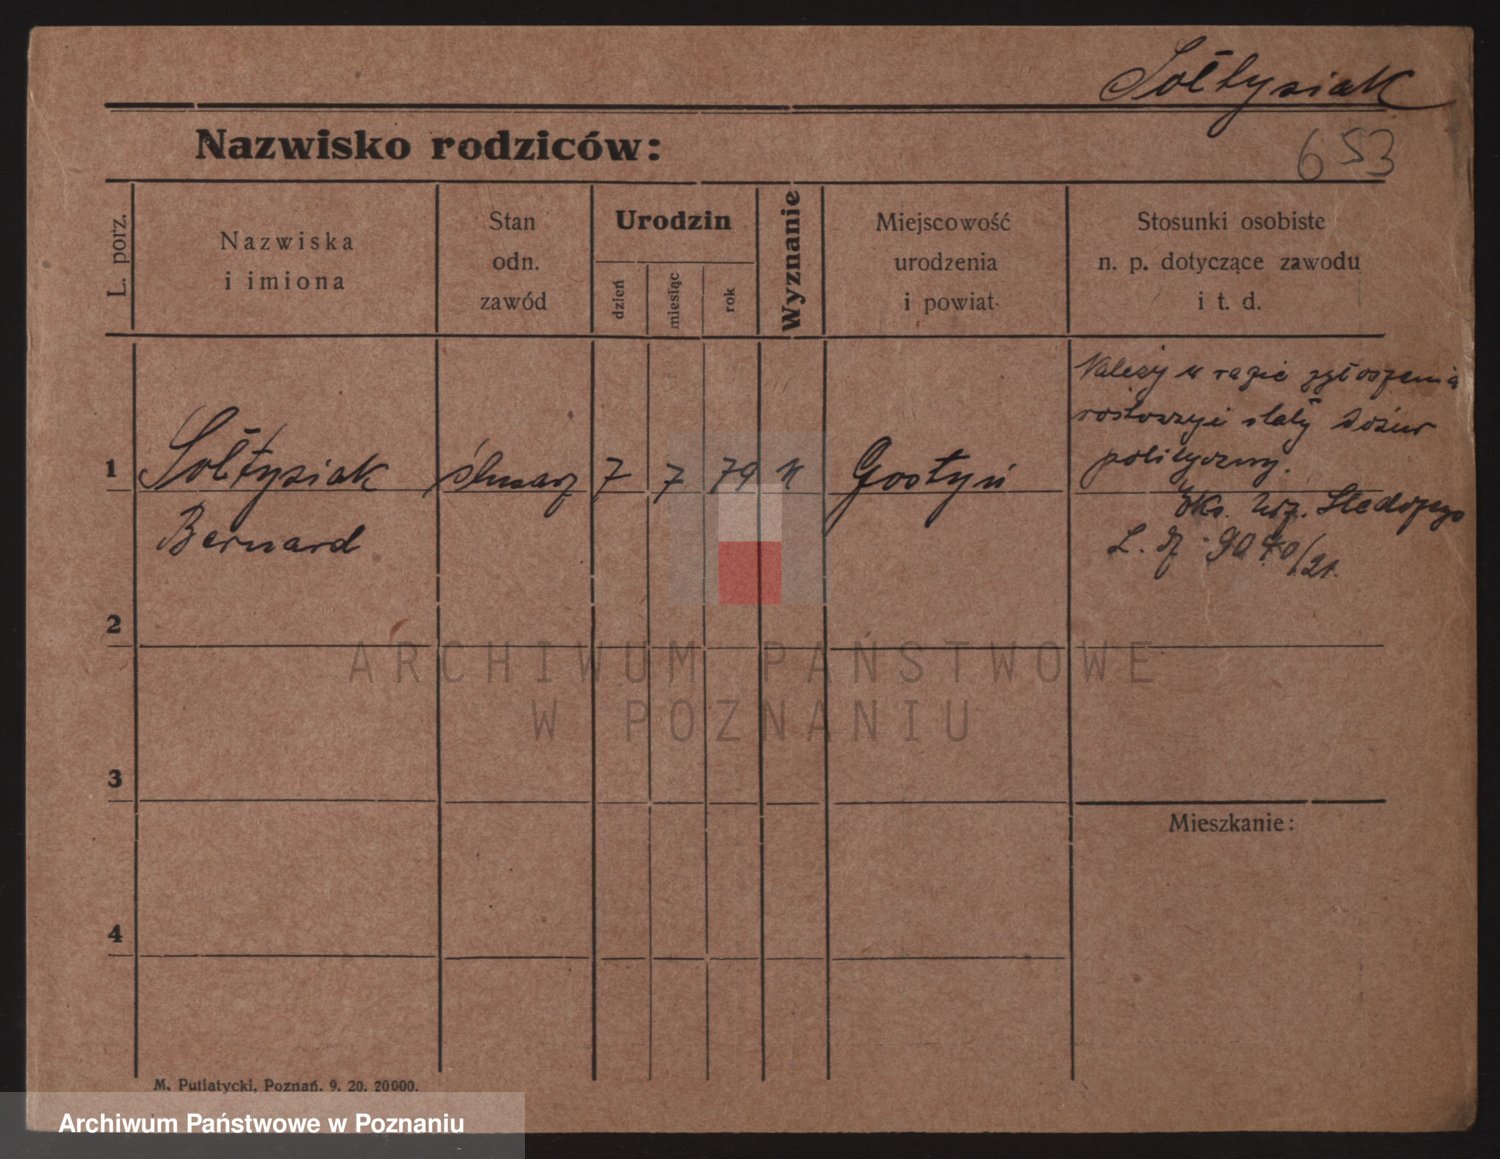 Sołtysiak
Nazwisko rodziców:
653
L. porz.
Nazwiska
i imiona
Stan
odn.
zawód
Urodzin
dzień
miesiąc
rok
Wyznanie
Miejscowość
urodzenia
i powiat
Stosunki osobiste
n. p. dotyczące zawodu
i t. d.
1
Sołtysiak
Bernard
ślusarz
7
7
79
K
Gostyń
Należy w razie zgłoszenia
roztoczyć stały dozór
polityczny.
Eks. Urz. Śledczego
L. dz. 9040/21.
2
3
4
Mieszkanie:
M. Putiatycki, Poznań. 9. 20. 20000.
ARCHIWUM PAŃSTWOWE
W POZNANIU
Archiwum Państwowe w Poznaniu